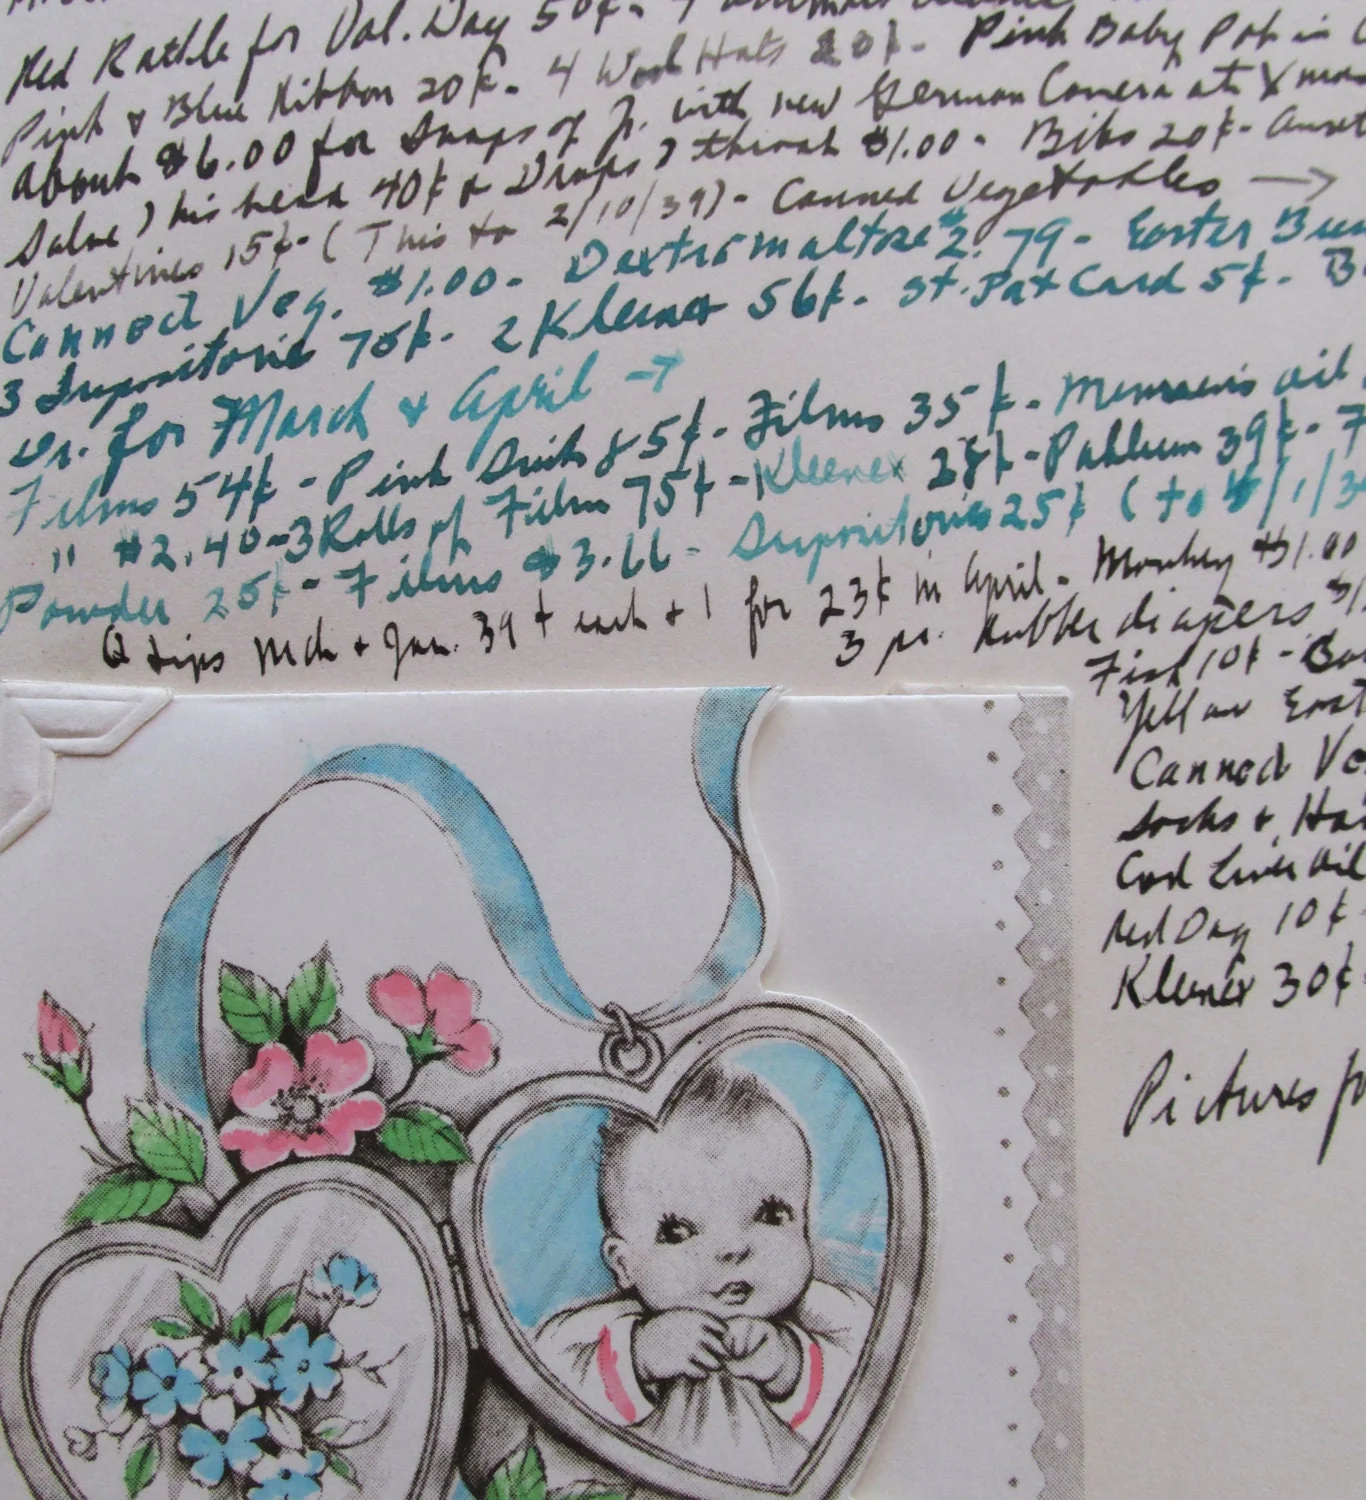 Red Rattle for Val. Day 50¢ -
Pink & Blue Ribbon 20¢ - 4 Wool Hats 20¢ - Pink Baby Pot in
About $6.00 for Snaps of Jr. with new German Camera at Xmas
Salve) his head 40¢ & Drops) throat $1.00 - Bibs 20¢ -
Valentines 15¢ - (This to 2/10/39) - Canned Vegetables →
Canned Veg. $1.00 - Dextromaltose $2.79 - Easter
3 Supositorie 75¢ - 2 Kleenex 56¢ - St. Pat Card 5¢ -
Dr. for March & April →
Films 54¢ - Pink Suit 85¢ - Films 35¢ - Mennens oil
" $2.40 - 3 Rolls of Film 75¢ - Kleenex 28¢ - Pablum 39¢ -
Powder 25¢ - Films $3.66 - Supositories 25¢ (to
Q tips Mch & Jan. 39¢ each & 1 for 23¢ in April - Monkey $1.00
3 pr. Rubber diapers
Fish 10¢ -
Yellow
Canned
Socks &
Cod Liver Oil
Red Dog 10¢
Kleenex 30¢
Pictures